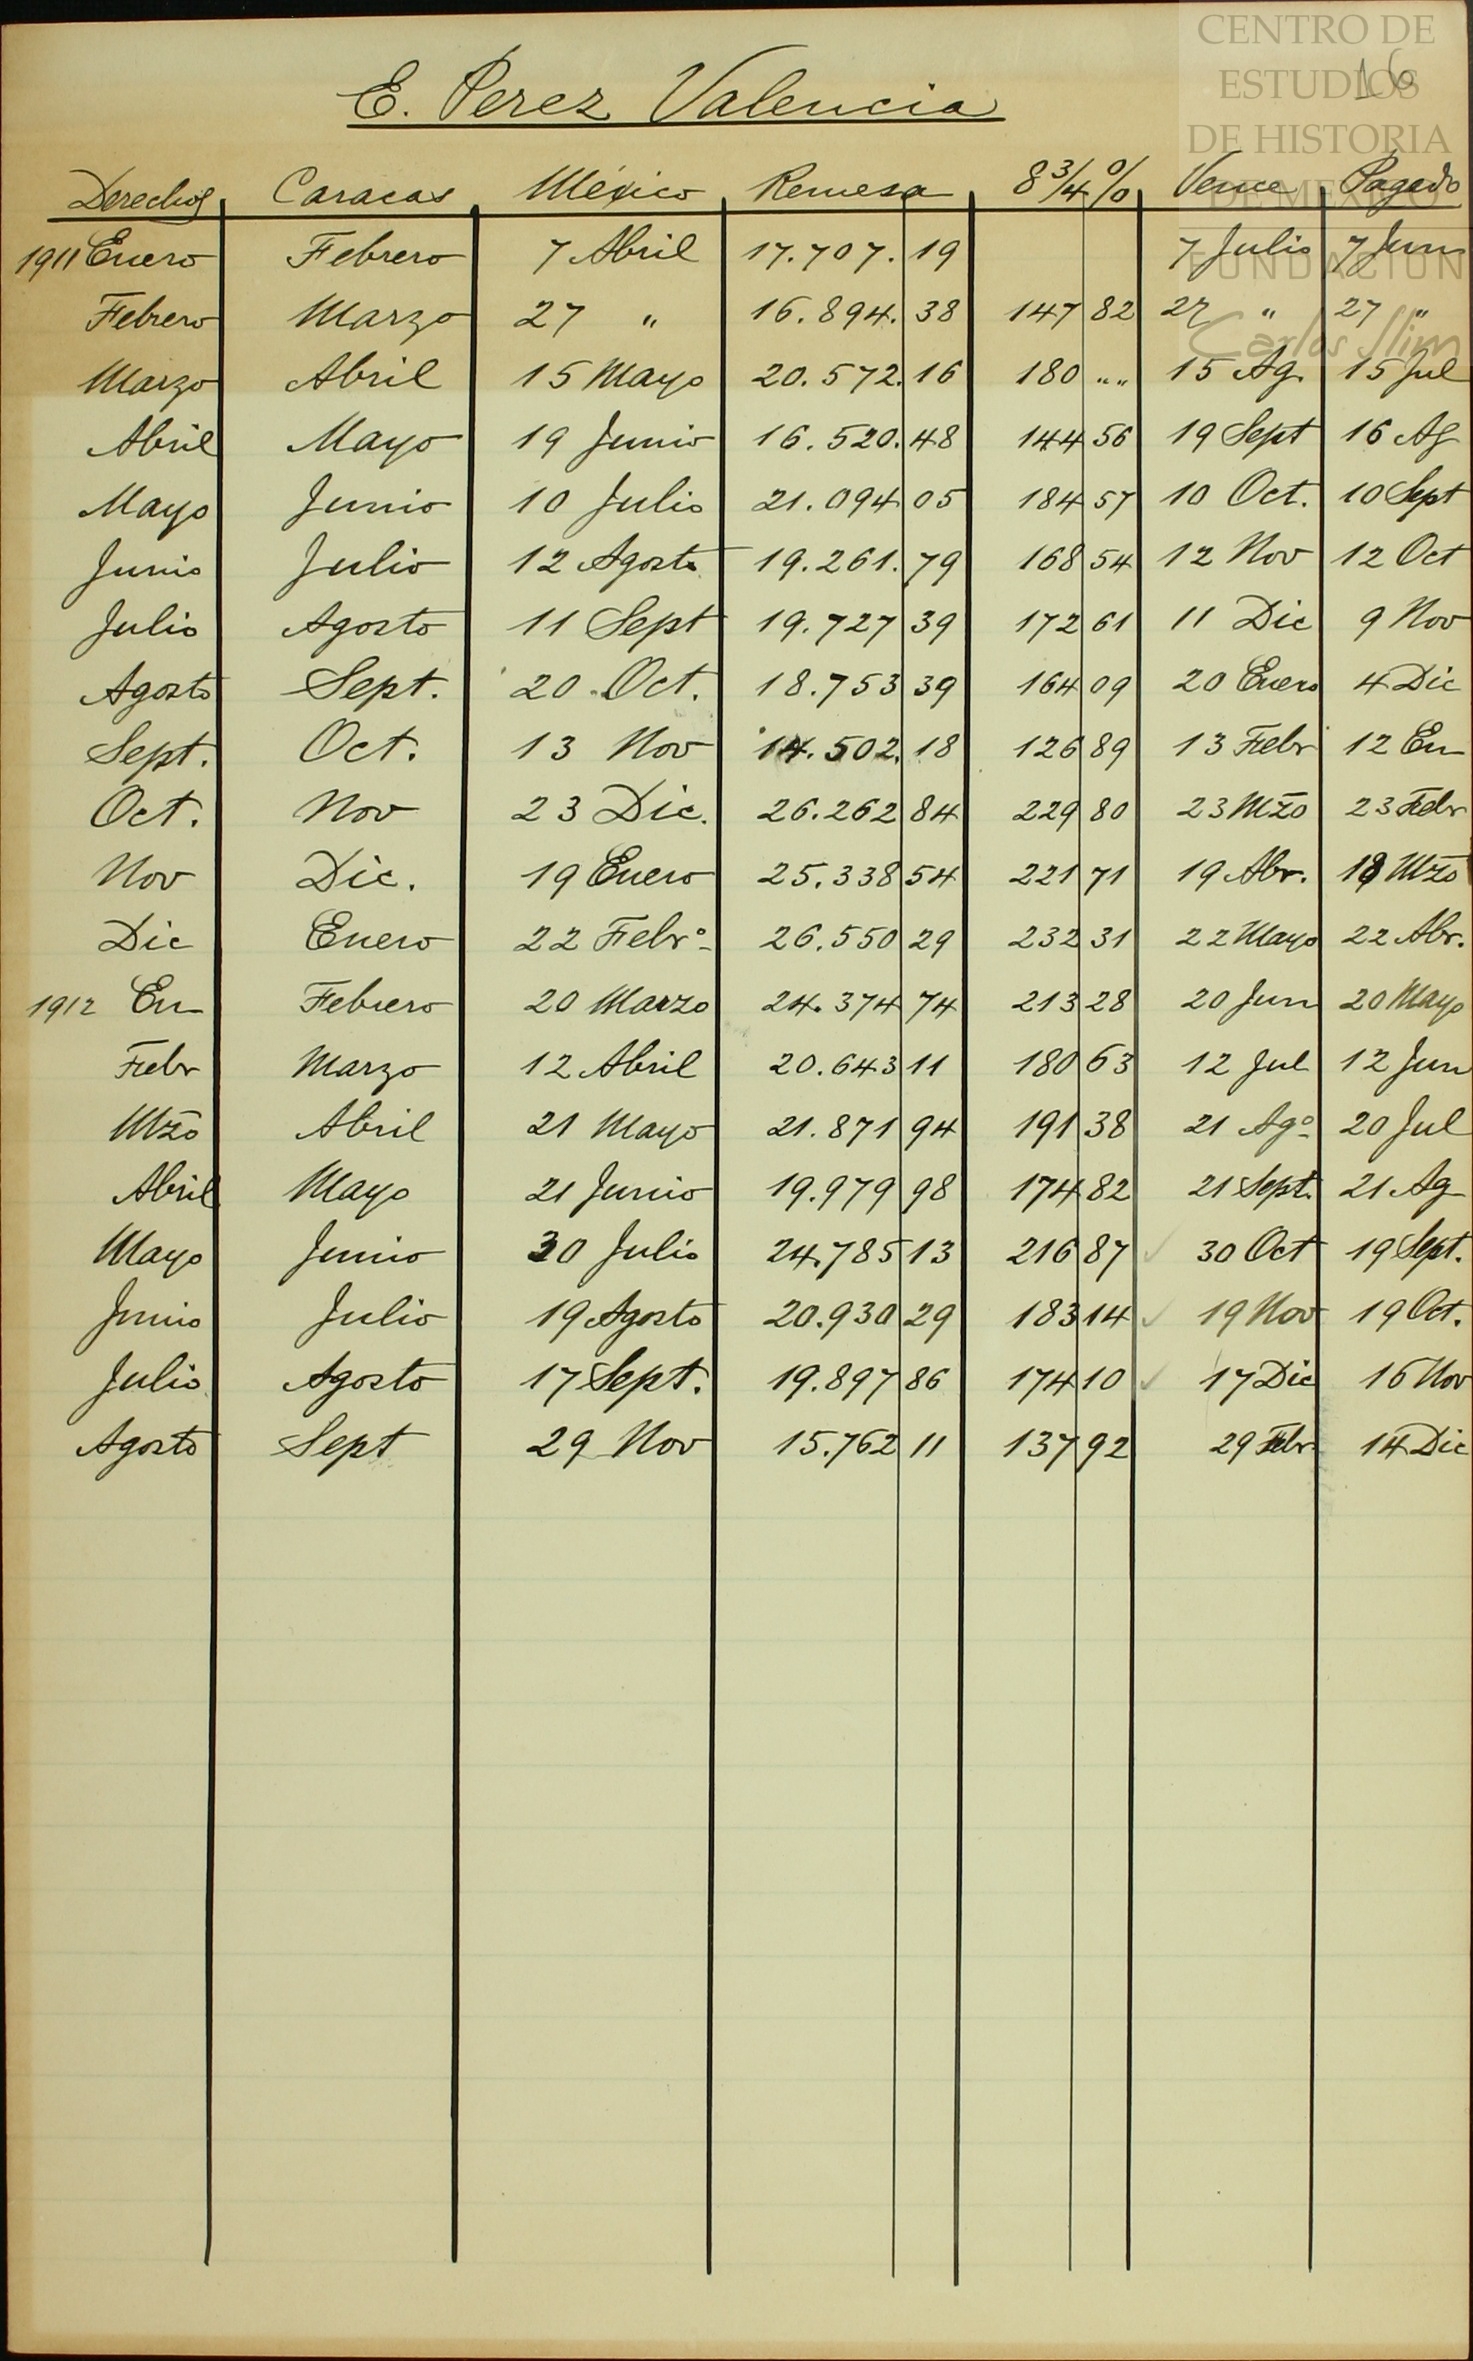 CENTRO DE
ESTUDIOS
DE HISTORIA
DE MEXICO
FUNDACION
Carlos Slim
16
E. Perez Valencia
Derechos Caracas México Remesa 8 3/4 % Vence Pagado
1911 Enero Febrero 7 Abril 17.707. 19 7 Julio 7 Jun
Febrero Marzo 27 " 16.894. 38 147 82 27 " 27 "
Marzo Abril 15 Mayo 20.572. 16 180 "" 15 Ag. 15 Jul
Abril Mayo 19 Junio 16.520. 48 144 56 19 Sept 16 Ag
Mayo Junio 10 Julio 21.094 05 184 57 10 Oct. 10 Sept
Junio Julio 12 Agosto 19.261. 79 168 54 12 Nov 12 Oct
Julio Agosto 11 Sept 19.727 39 172 61 11 Dic 9 Nov
Agosto Sept. 20 Oct. 18.753 39 164 09 20 Enero 4 Dic
Sept. Oct. 13 Nov 14.502. 18 126 89 13 Febr 12 En
Oct. Nov 23 Dic. 26.262 84 229 80 23 Mzo 23 Febr
Nov Dic. 19 Enero 25.338 54 221 71 19 Abr. 19 Mzo
Dic Enero 22 Febrº 26.550 29 232 31 22 Mayo 22 Abr.
1912 En Febrero 20 Marzo 24.374 74 213 28 20 Jun 20 Mayo
Febr Marzo 12 Abril 20.643 11 180 63 12 Jul 12 Jun
Mzo Abril 21 Mayo 21.871 94 191 38 21 Agº 20 Jul
Abril Mayo 21 Junio 19.979 98 174 82 21 Sept. 21 Ag
Mayo Junio 30 Julio 24.785 13 216 87 30 Oct 19 Sept.
Junio Julio 19 Agosto 20.930 29 183 14 19 Nov 19 Oct.
Julio Agosto 17 Sept. 19.897 86 174 10 17 Dic 16 Nov
Agosto Sept 29 Nov 15.762 11 137 92 29 Febr 14 Dic